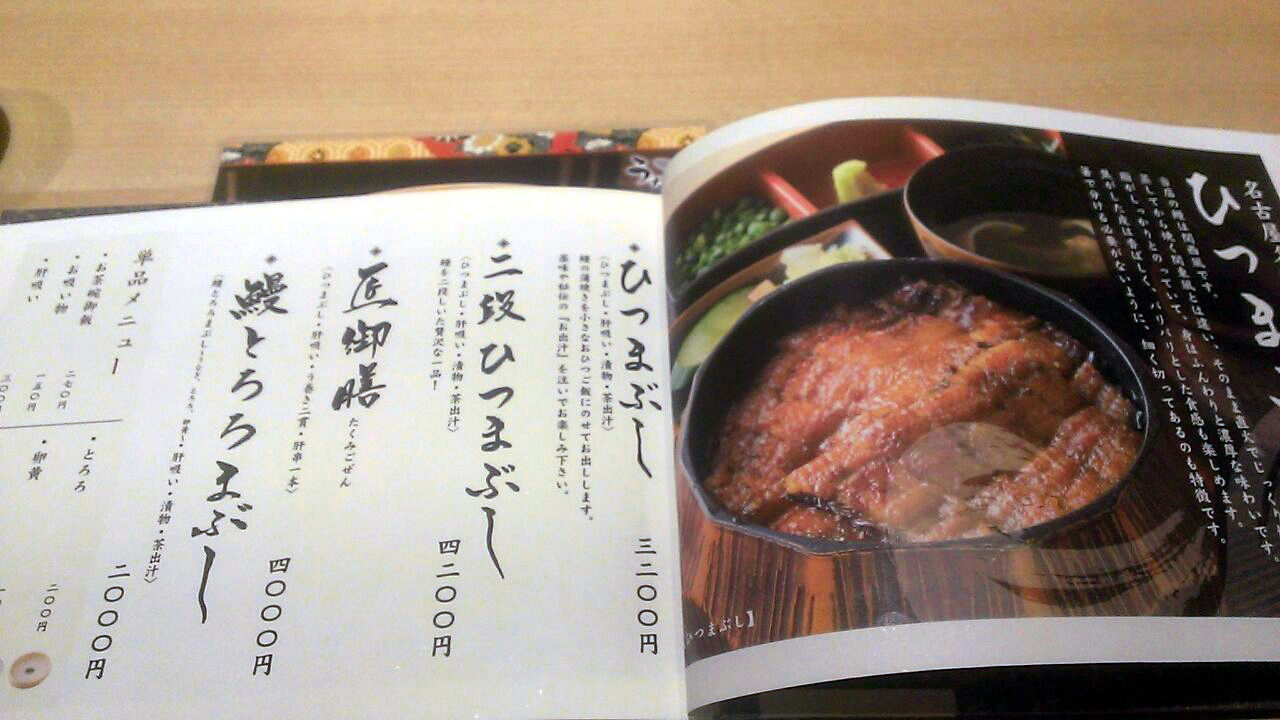 名古屋
ひつま
当店の鰻は関西風です。
蒸してから焼く関東風とは違い、そのまま直火でじっく
脂がしっかりとのっていて、身はふんわりと濃厚な味わいです
焦がした皮は香ばしく、パリパリとした食感も楽しめます。
箸で分ける必要がないように、細く切ってあるのも特徴です。
ひつまぶし】
ひつまぶし
(ひつまぶし・肝吸い・漬物・茶出汁)
鰻の蒲焼きを小さなおひつご飯にのせてお出しします。
薬味や秘伝の「お出汁」を注いでお楽しみ下さい。
三二〇〇円
二段ひつまぶし
(ひつまぶし・肝吸い・漬物・茶出汁)
鰻を二段しいた贅沢な一品!
四二〇〇円
匠御膳
たくみごぜん
(ひつまぶし・肝吸い・う巻き二貫・肝串一本)
四〇〇〇円
鰻とろろまぶし
肝吸い・漬物・茶出汁)
二〇〇〇円
単品メニュー
・お茶碗御飯
二七〇円
・お吸い物
一五〇円
・肝吸い
三〇〇円
・とろろ
二〇〇円
・卵黄